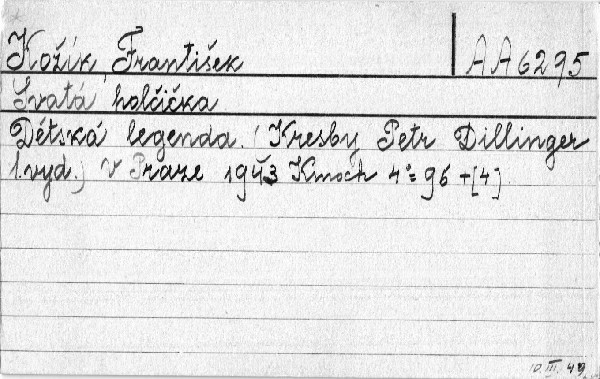 Kožík, František AA6295
Svatá holčička
Dětská legenda. (Kresby Petr Dillinger
1. vyd.) V Praze 1943 Kmoch 4° 96 + [4]
10. III. 49